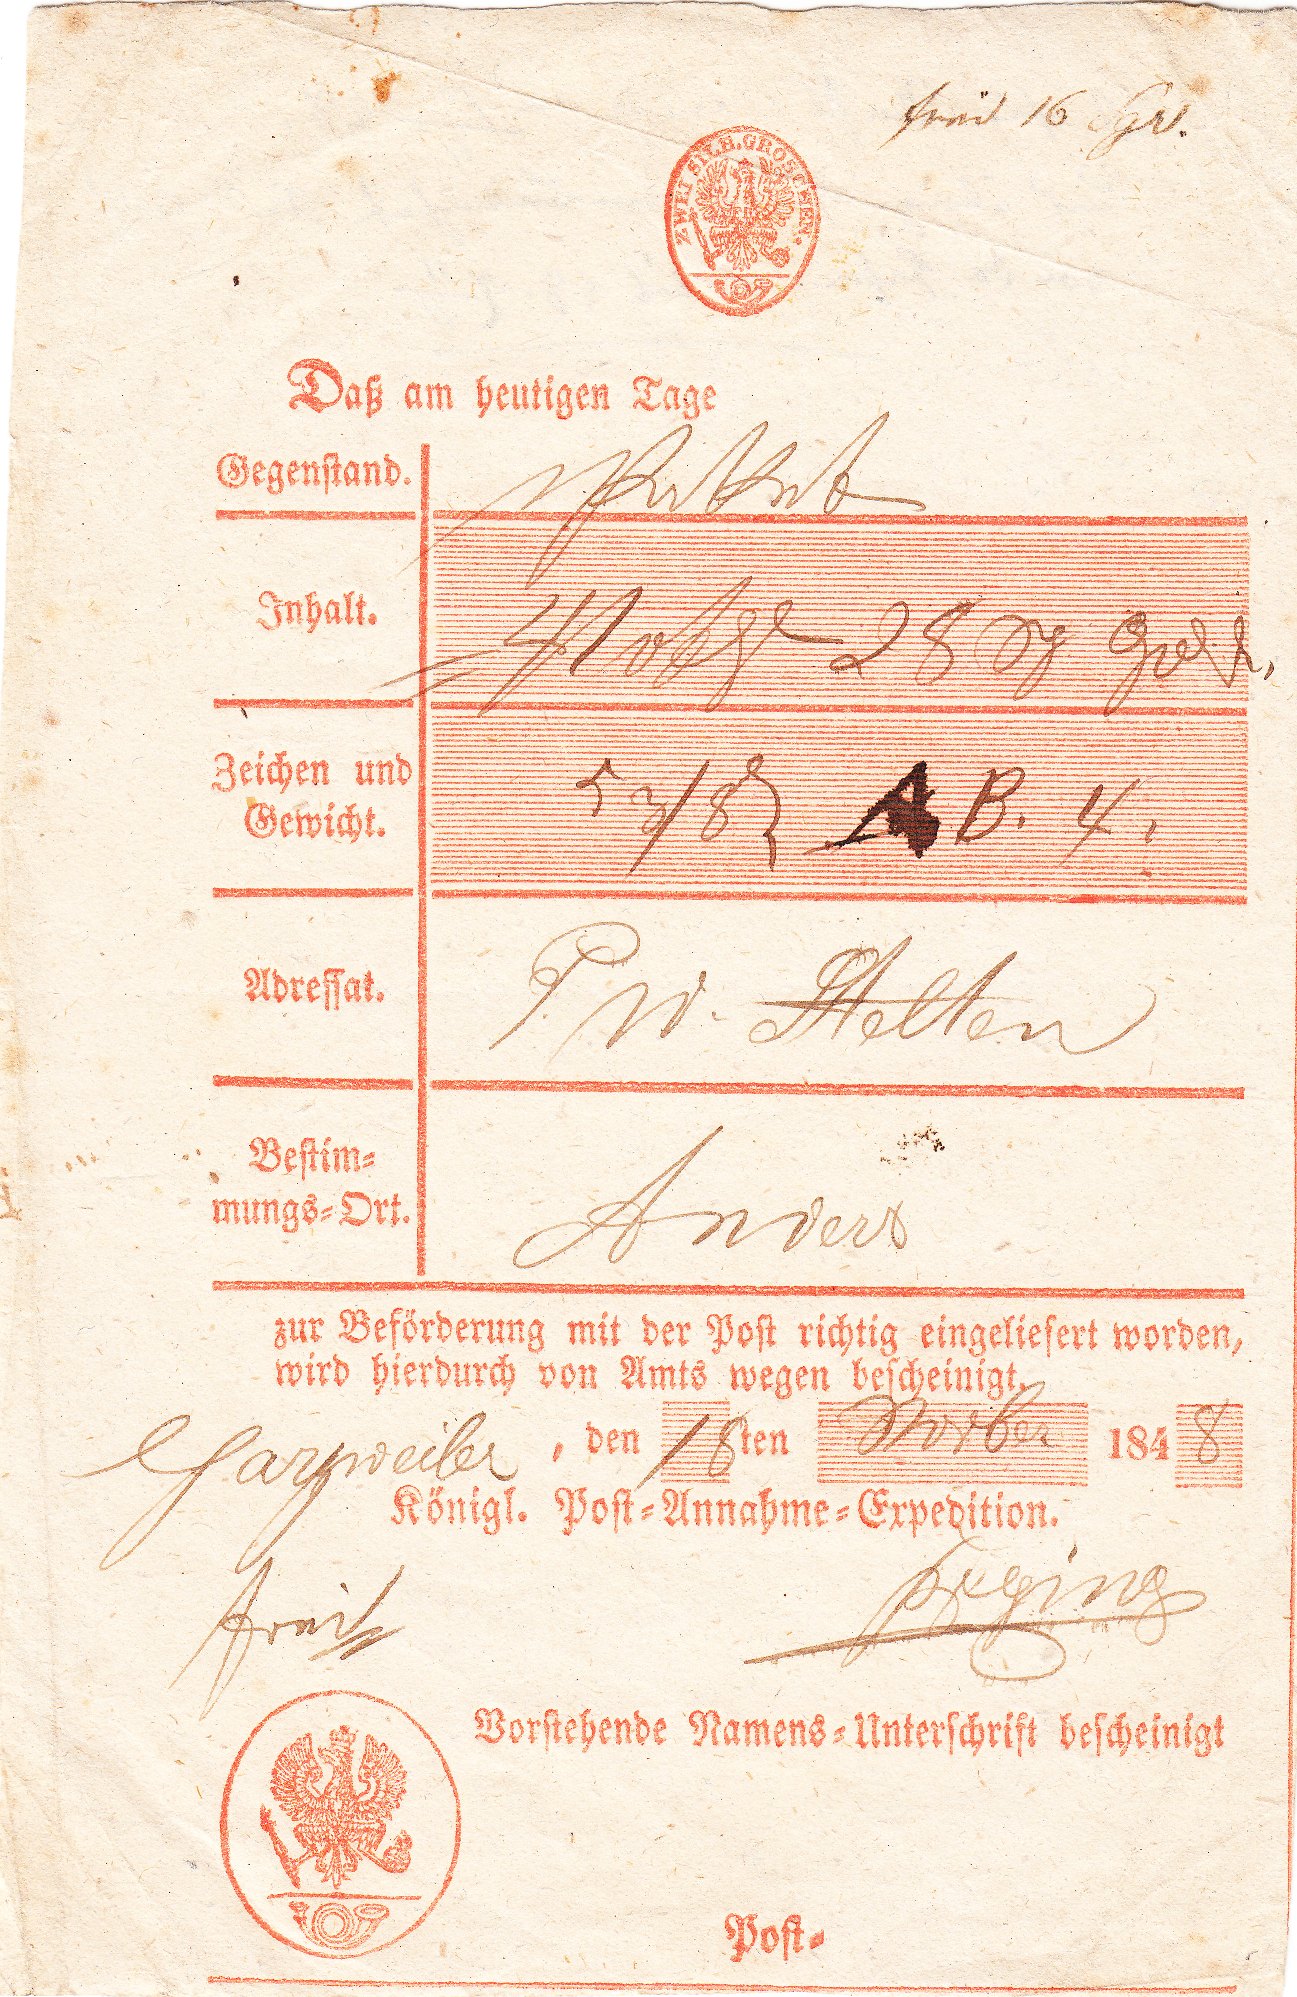 frei 16 Sgr.
ZWEI SILB. GROSCHEN.
Daß am heutigen Tage
Gegenstand. Paket
Inhalt. 41 28 Sg
Zeichen und
Gewicht. 5 3/8 A B. 4.
Adressat. P. W. Stelten
Bestim-
mungs-Ort. Anders
zur Beförderung mit der Post richtig eingeliefert worden,
wird hierdurch von Amts wegen bescheinigt.
Garzweiler, den 18ten Novber 1848
Königl. Post-Annahme-Expedition.
frei
Vorstehende Namens-Unterschrift bescheinigt
Post-